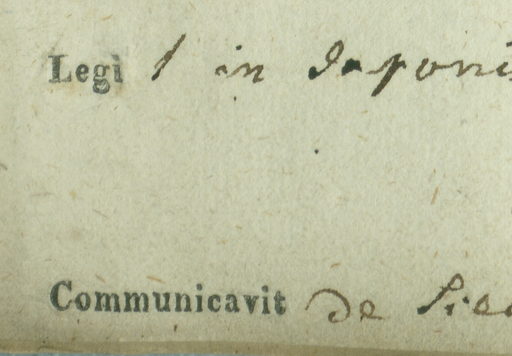 Legi in Japoni
Communicavit de Sie